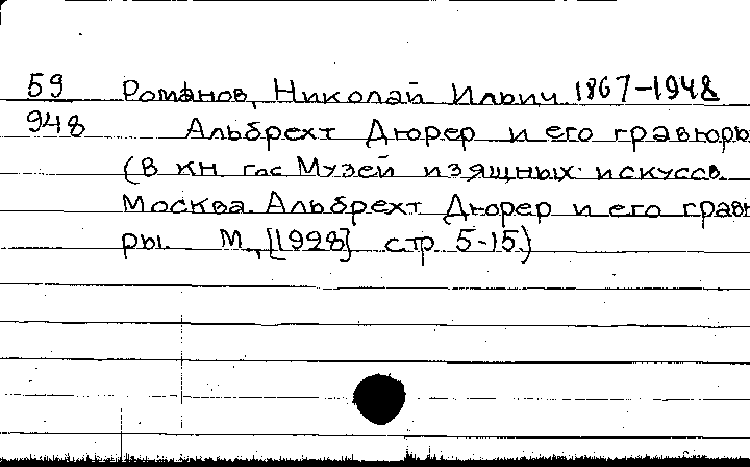 59 Романов, Николай Ильич 1867-1948
948 Альбрехт Дюрер и его гравюры
(В кн. гос Музей изящных искусств.
Москва. Альбрехт Дюрер и его грав
ры. М., [1928] стр 5-15.)